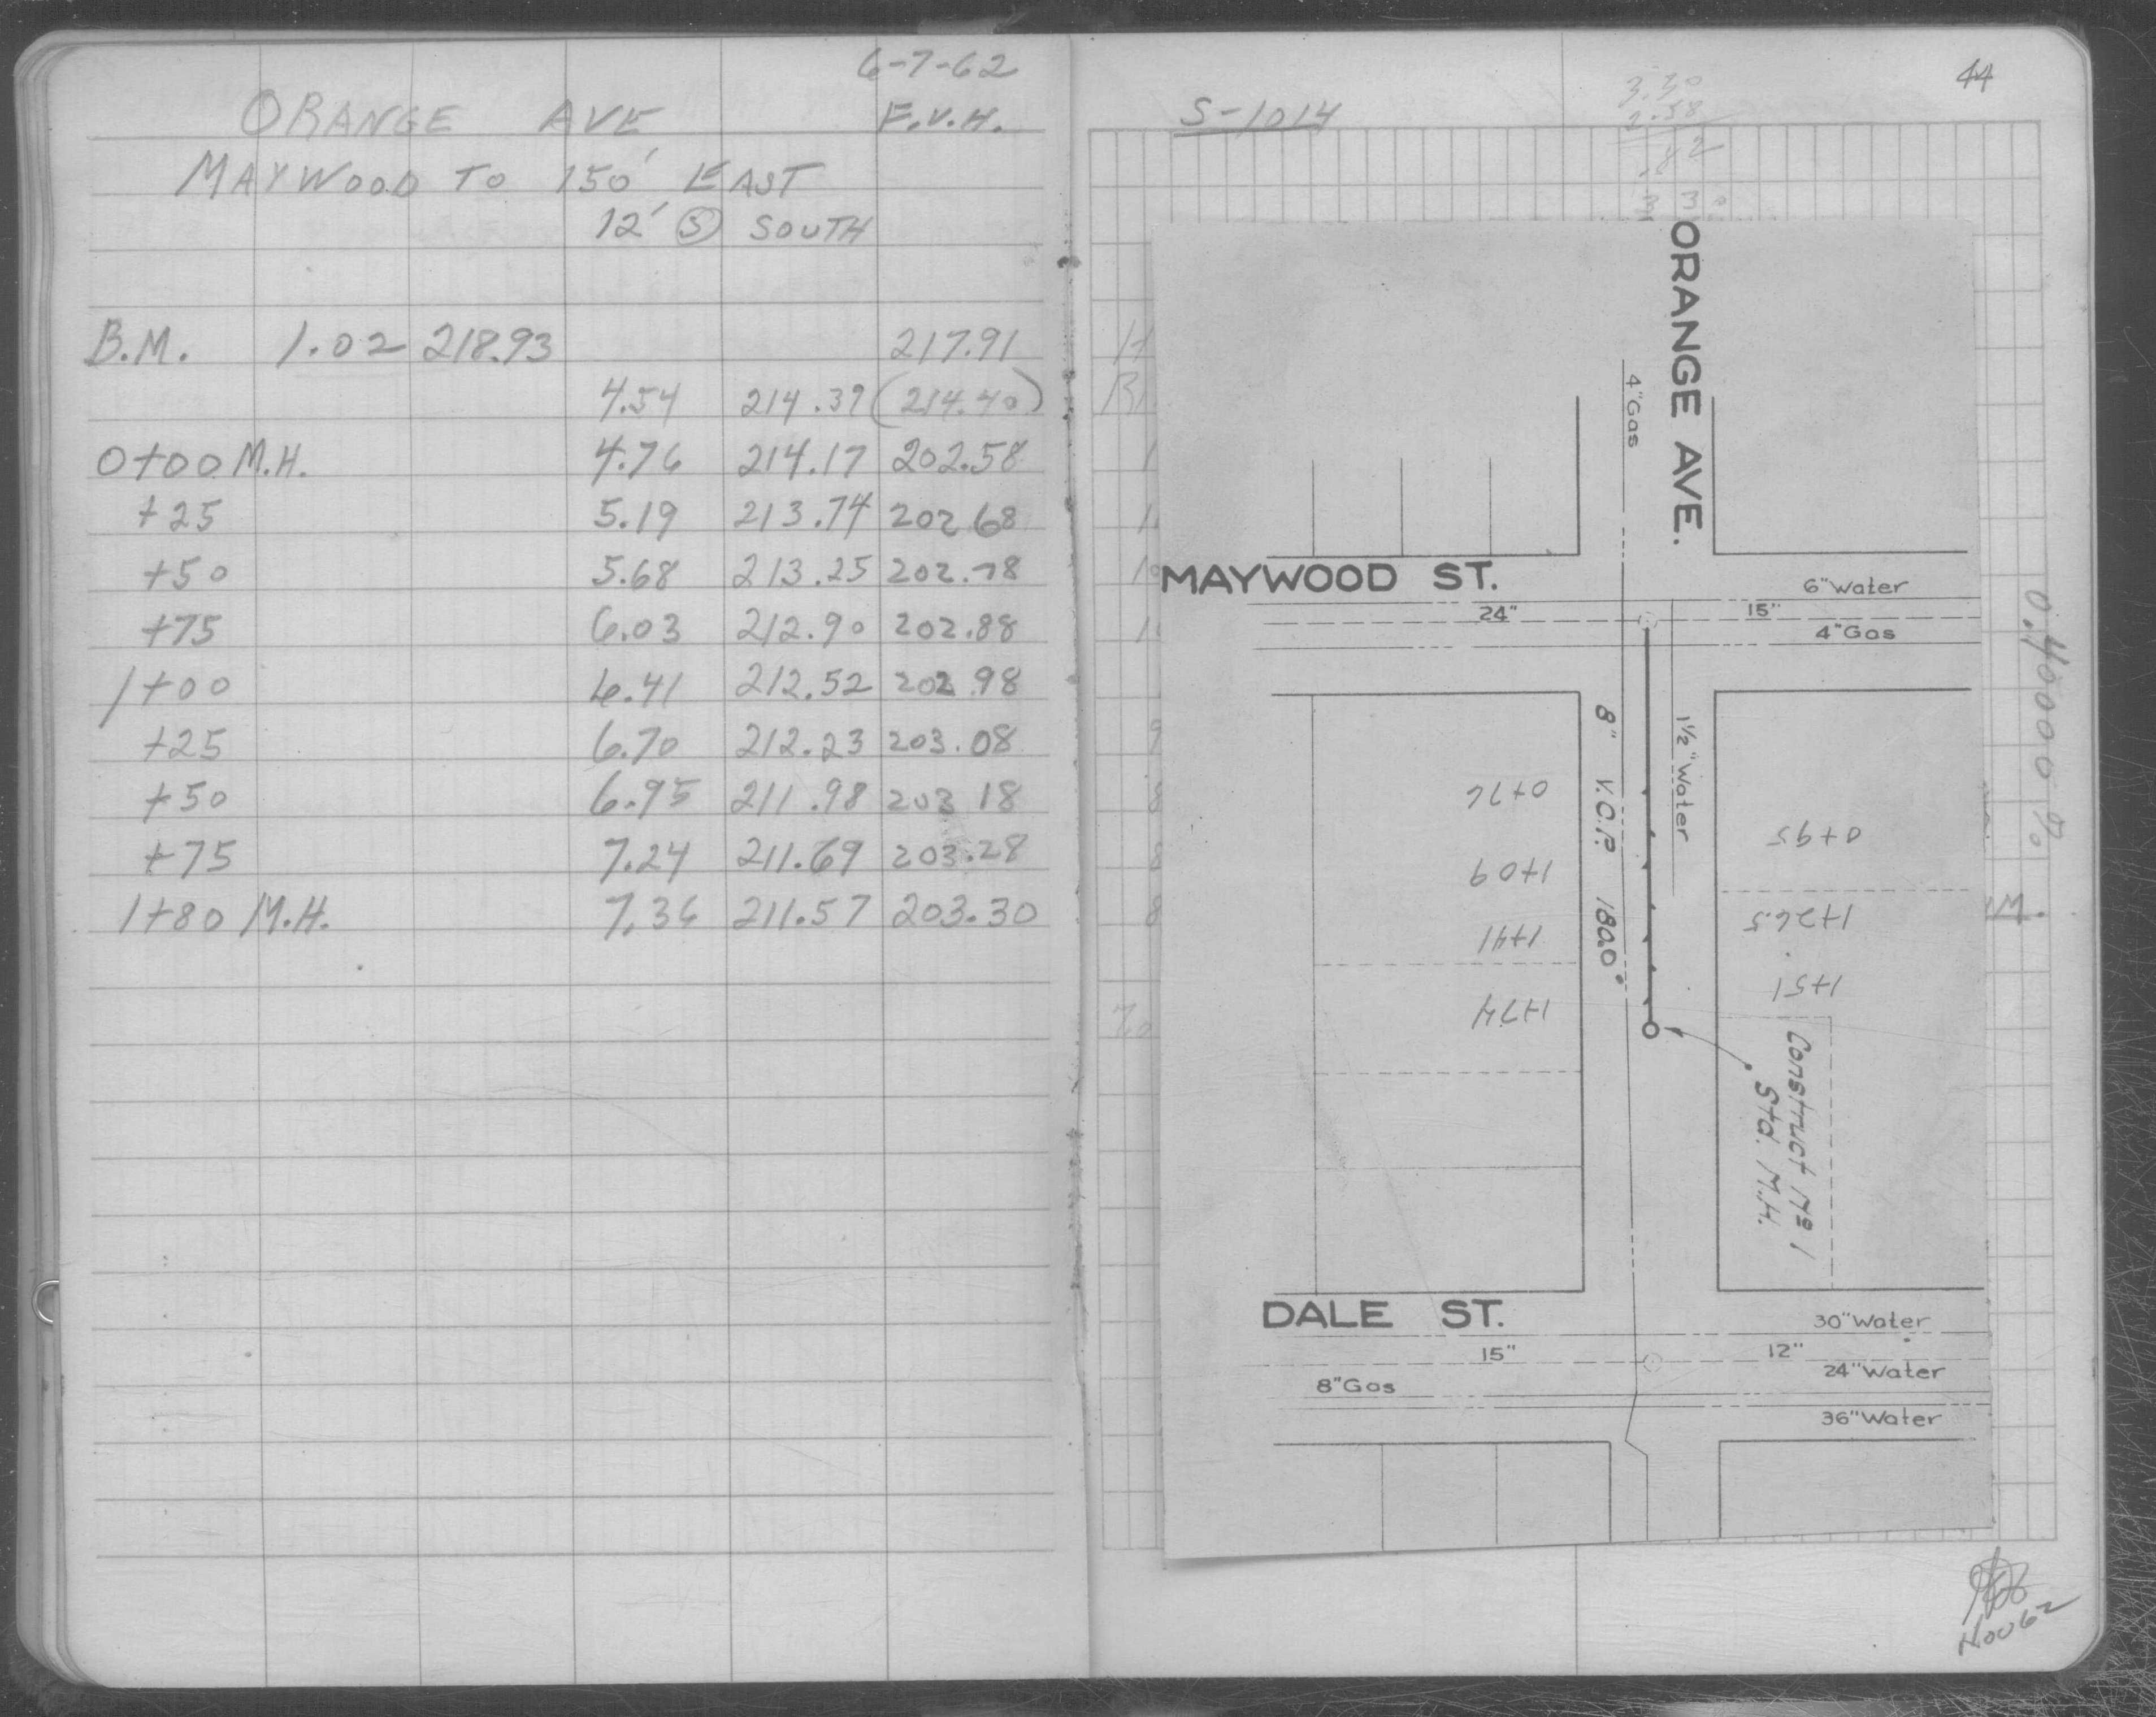 6-7-62
ORANGE AVE F.V.H.
MAYWOOD TO 150' EAST
12' Ⓢ SOUTH
B.M. 1.02 218.93 217.91
4.54 214.39 (214.40)
0+00 M.H. 4.76 214.17 202.58
+25 5.19 213.74 202.68
+50 5.68 213.25 202.78
+75 6.03 212.90 202.88
1+00 6.41 212.52 202.98
+25 6.70 212.23 203.08
+50 6.95 211.98 203.18
+75 7.24 211.69 203.28
1+80 M.H. 7.36 211.57 203.30
44
S-1014
3.30
2.58
.82
ORANGE AVE.
4"Gas
MAYWOOD ST.
6"Water
24"
15"
4"Gas
8" V.C.P. 180.0'
1½"Water
0+76
1+09
1+41
1+74
0+95
1+26.5
1+51
Construct Nº 1
Std. M.H.
DALE ST.
30"Water
15"
12"
24"Water
8"Gas
36"Water
0.40000%
M.
Nov 62